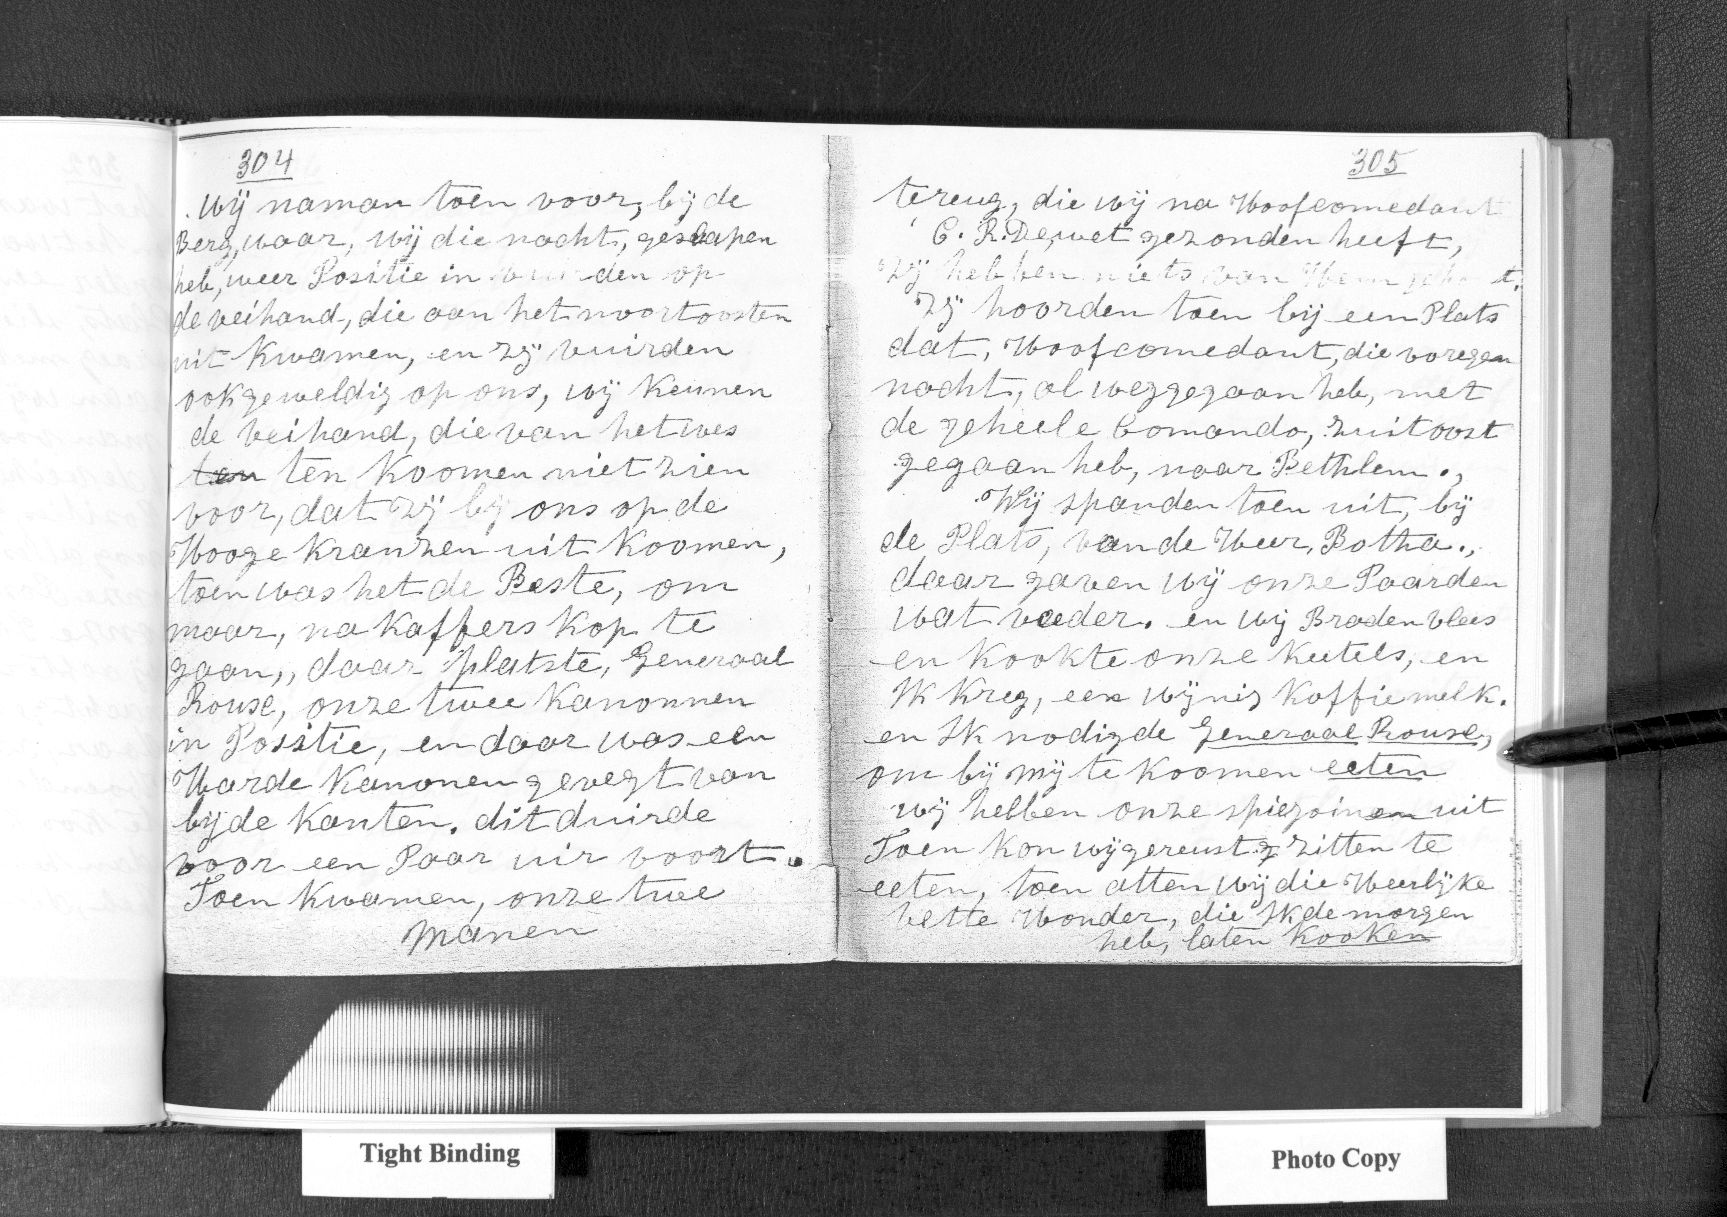 304
Wij naman toen voor, bij de
Berg, waar, wij die nacht, geslapen
heb, weer Positie in den op
de veihand, die aan het noortoosten
uit Kwamen, en zij vuirden
ook geweldig op ons, wij Keunen
de veihand, die van het wes
ten ten Koomen niet zien
voor, dat zij bij ons op de
Hooge Kranzen uit Koomen,
toen was het de Beste, om
maar, na Kaffers Kop te
gaan,, daar platste, Generaal
Rouse, onze twee Kanonnen
in Possitie, en daar was een
Harde Kanonen gevegt van
bijde Kanten. dit duirde
voor een Paar uir voort.
Toen Kwamen, onze twe
Manen
305
tereug, die wij na Hoofcomedant
C. R. De,wet gezonden heeft,
zij hebben niets van Hem
zij hoorden toen bij een Plats
dat, Hoofcomedant, die voregen
nacht, al weggegaan heb, met
de geheele Comando, zuitoost
gegaan heb, naar Bethlem.,
Wij spanden toen uit, bij
de Plats, van de Heer, Botha.,
daar gaven wij onze Paarden
wat voeder. en wij Braden vlees
en Kookte onze Keetels, en
Ik Kreg, een wijnig Koffie melk.
en Ik nodigde Generaal Rouse,
om bij mij te Koomen eeten
wij hebben onze spiezoinen uit
Toen Kon wij gereust zitten te
eeten, toen atten wij die Heerlijke
vette Honder, die Ik de morgen
heb, laten Kooken
Tight Binding
Photo Copy